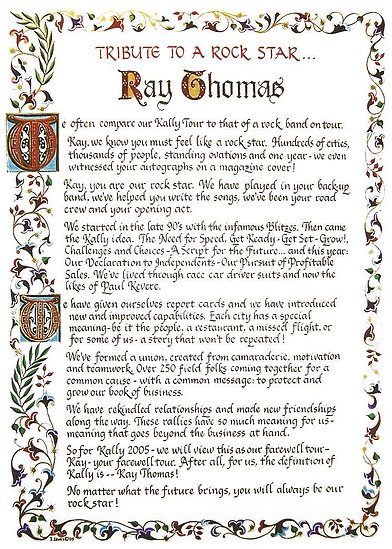 TRIBUTE TO A ROCK STAR...
Ray Thomas
We often compare our Rally Tour to that of a rock band on tour.
Ray, we know you must feel like a rock star. Hundreds of cities,
thousands of people, standing ovations and one year - we even
witnessed your autographs on a magazine cover!
Ray, you are our rock star. We have played in your backup
band, we've helped you write the songs, we've been your road
crew and your opening act.
We started in the late 90's with the infamous Blitzes. Then came
the Rally idea. The Need for Speed, Get Ready - Get Set - Grow!,
Challenges and Choices - A Script for the Future... and this year:
Our Declaration to Independents - Our Pursuit of Profitable
Sales. We've lived through race car driver suits and now the
likes of Paul Revere.
We have given ourselves report cards and we have introduced
new and improved capabilities. Each city has a special
meaning - be it the people, a restaurant, a missed flight, or
for some of us - a story that won't be repeated!
We've formed a union, created from camaraderie, motivation
and teamwork. Over 250 field folks coming together for a
common cause - with a common message: to protect and
grow our book of business.
We have rekindled relationships and made new friendships
along the way. These rallies have so much meaning for us -
meaning that goes beyond the business at hand.
So for Rally 2005 - we will view this as our farewell tour -
Ray - your farewell tour. After all, for us, the definition of
Rally is -- Ray Thomas!
No matter what the future brings, you will always be our
rock star!